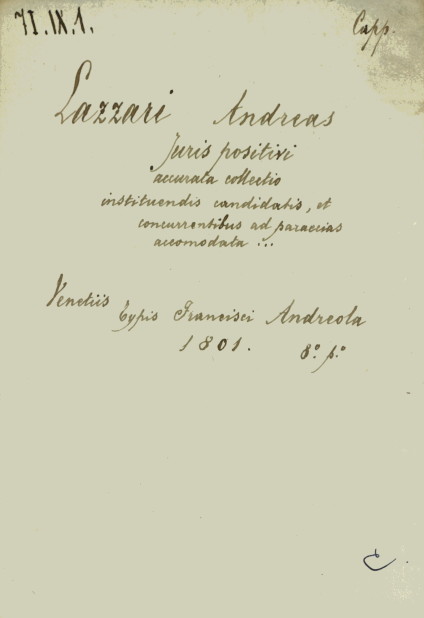 71.IX.1.
Capp.
Lazzari Andreas
Juris positivi
accurata collectio
instituendis candidatis, et
concurrentibus ad paraecias
accomodata ...
Venetiis
Typis Francisci Andreola
1801. 8.° p.°